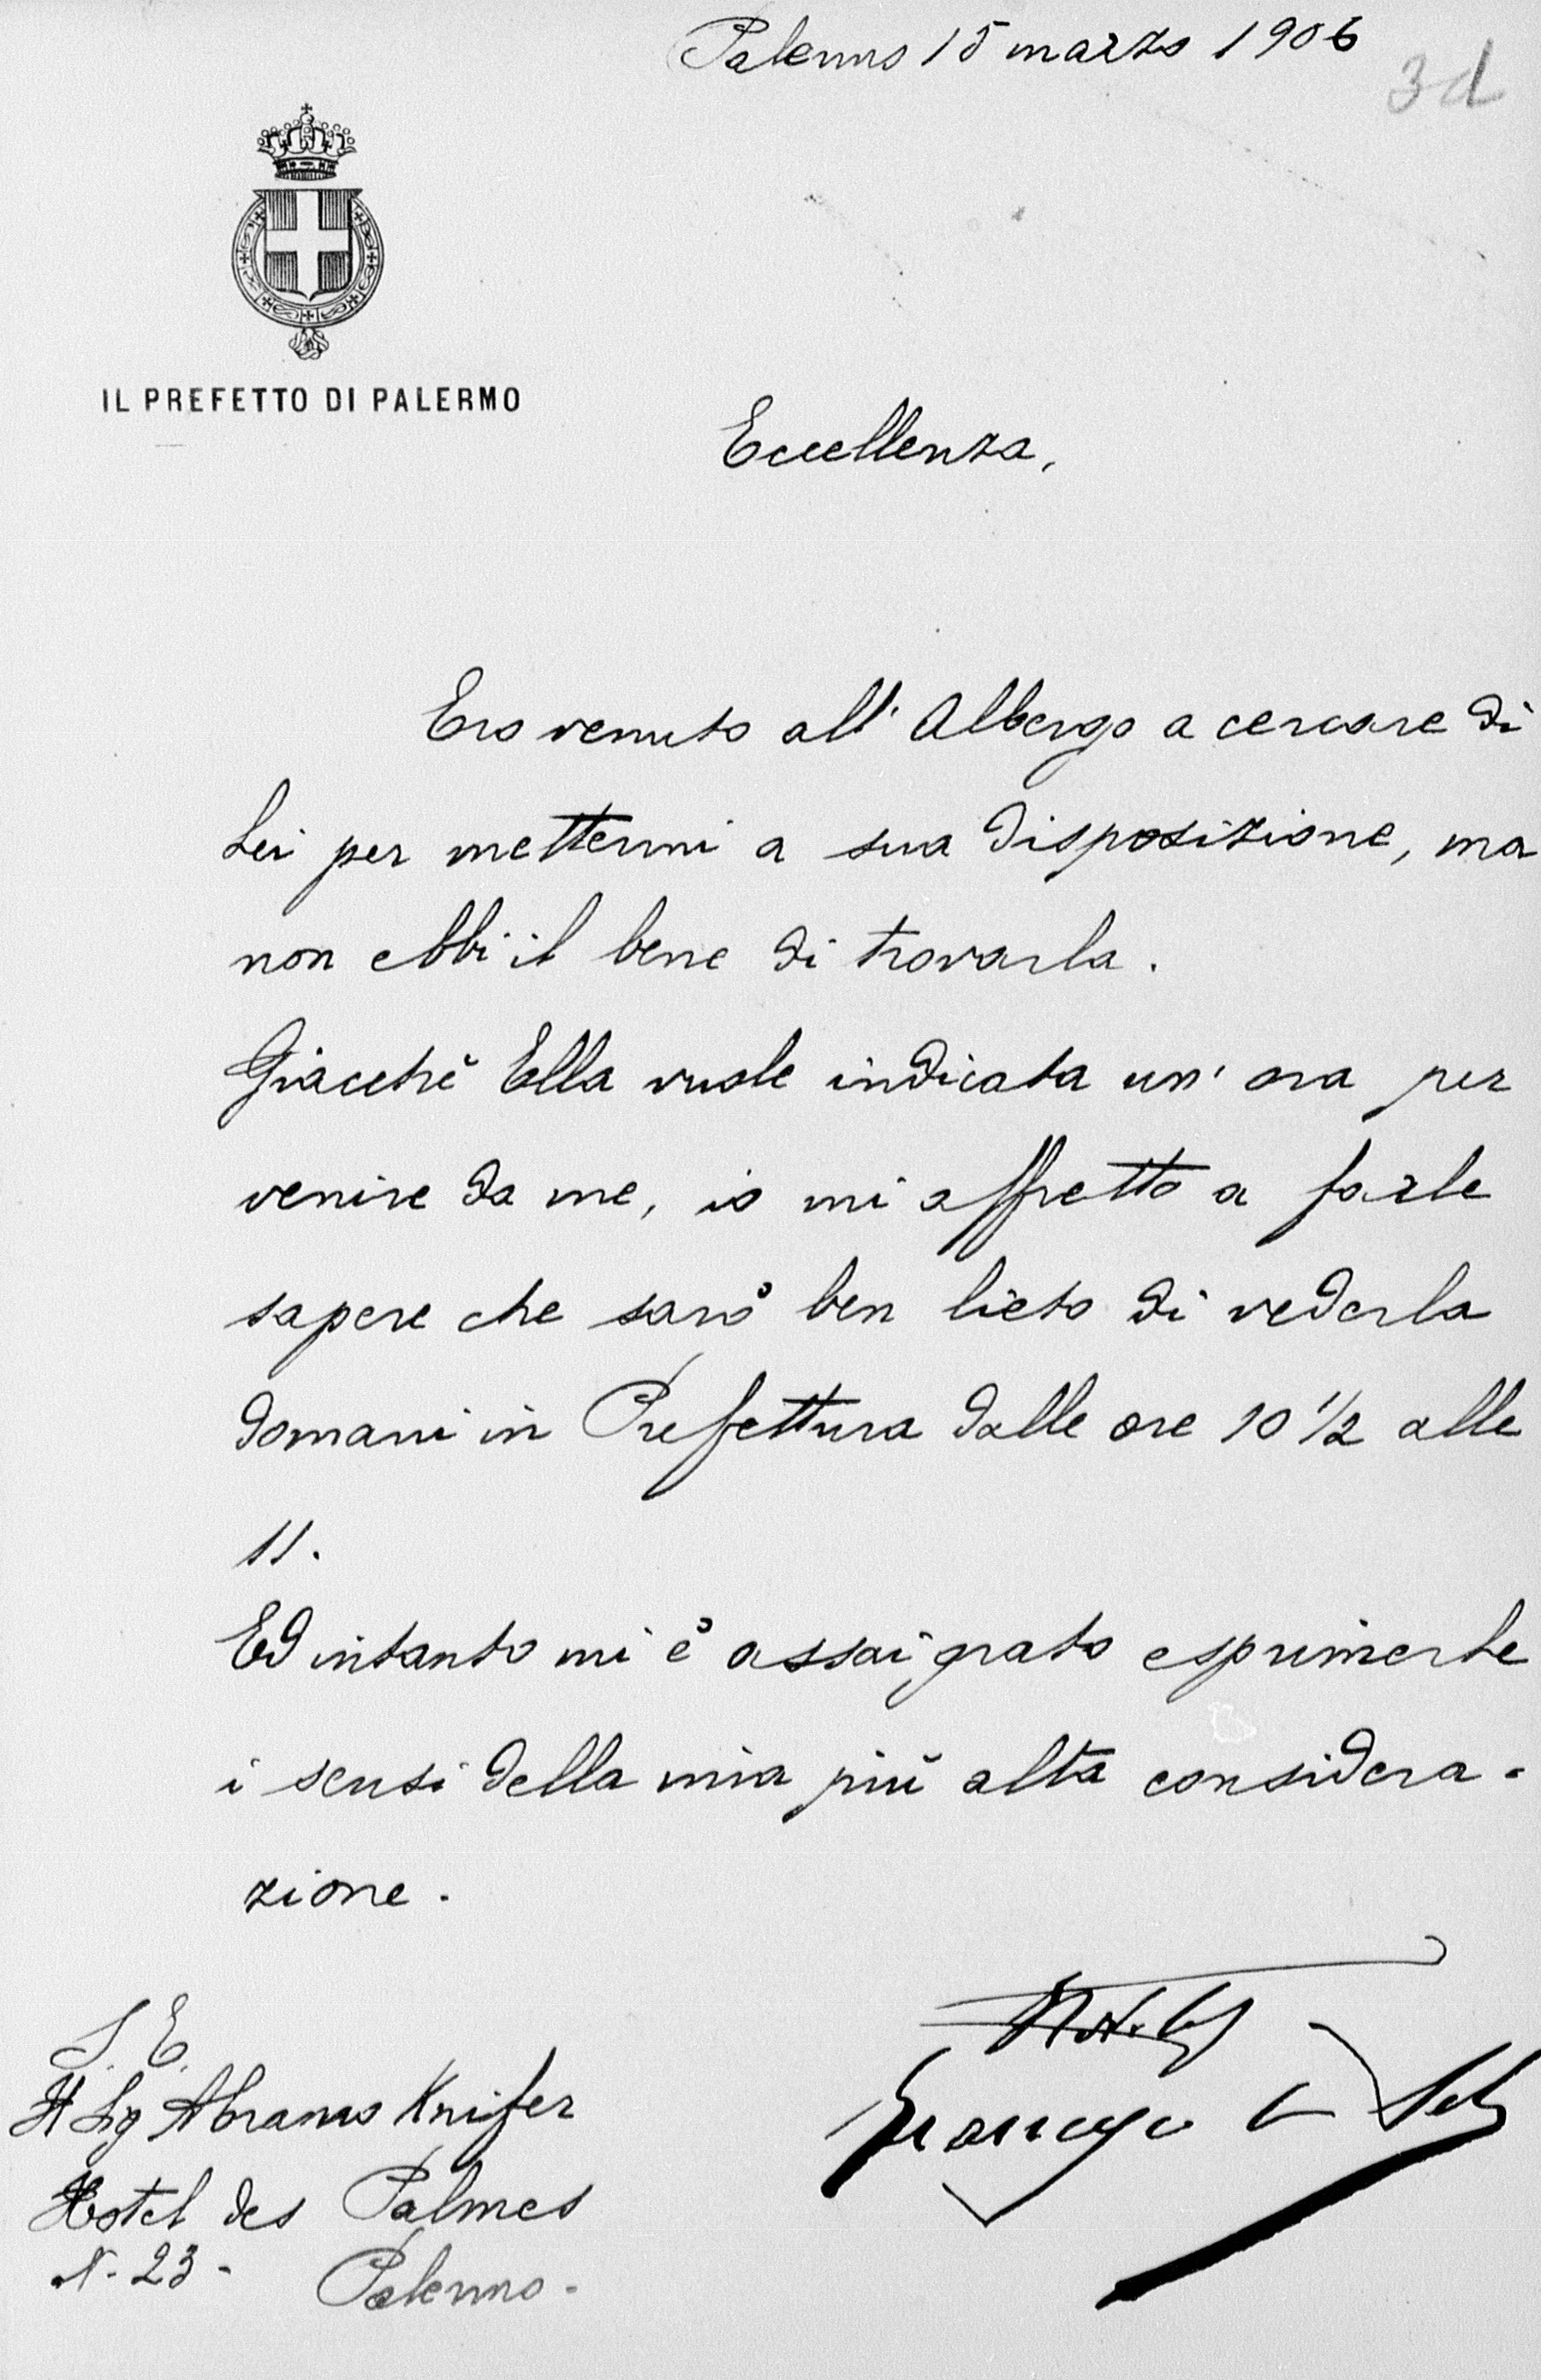 Palermo 15 marzo 1906
3d
IL PREFETTO DI PALERMO
Eccellenza,
Ero venuto all' Albergo a cercare di
Lei per mettermi a sua disposizione, ma
non ebbi il bene di trovarla.
Giacchè Ella vuole indicata un' ora per
venire da me, io mi affretto a farle
sapere che sarò ben lieto di vederla
domani in Prefettura dalle ore 10 1/2 alle
11.
Ed intanto mi è assai grato esprimerle
i sensi della mia più alta considera-
zione.
S. E.
Il Sig Abramo Knifer
Hotel des Palmes
N. 23 -
Palermo -
Francesco De